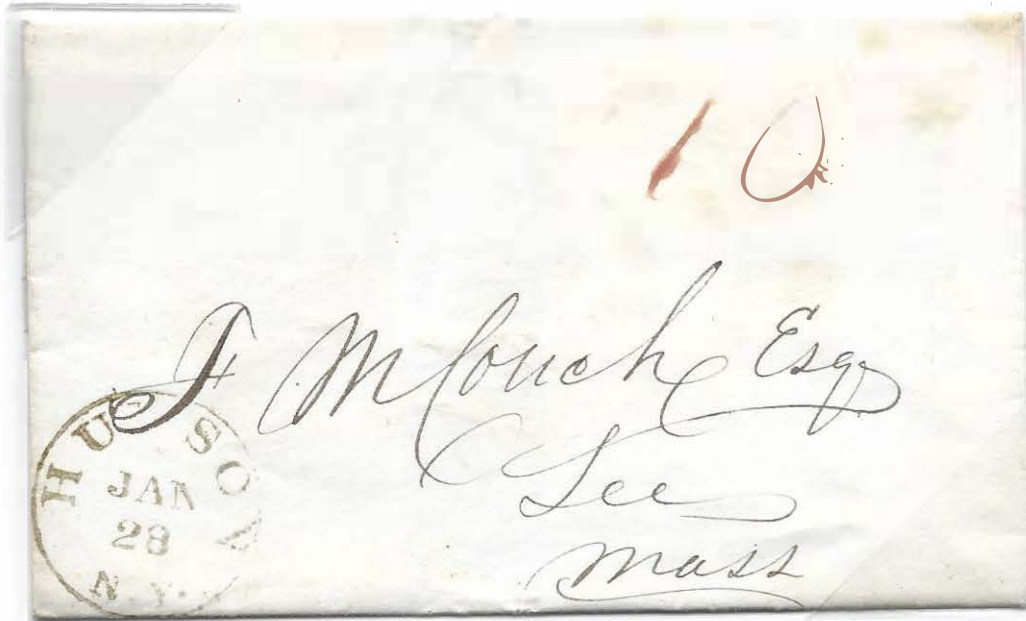 10
F M Couch Esq
Lee
Mass
HUDSON
JAN
28
N.Y.